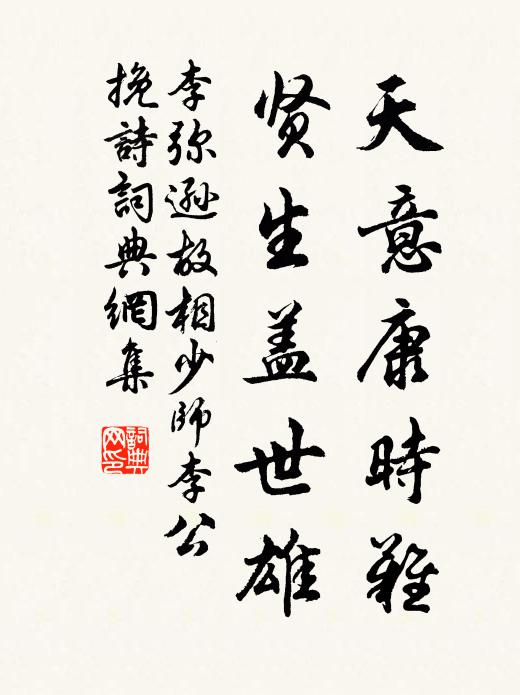 天意康時難
贤生盖世雄
李弥遜故相少師李公
挽詩詞典網集
詞典
网印